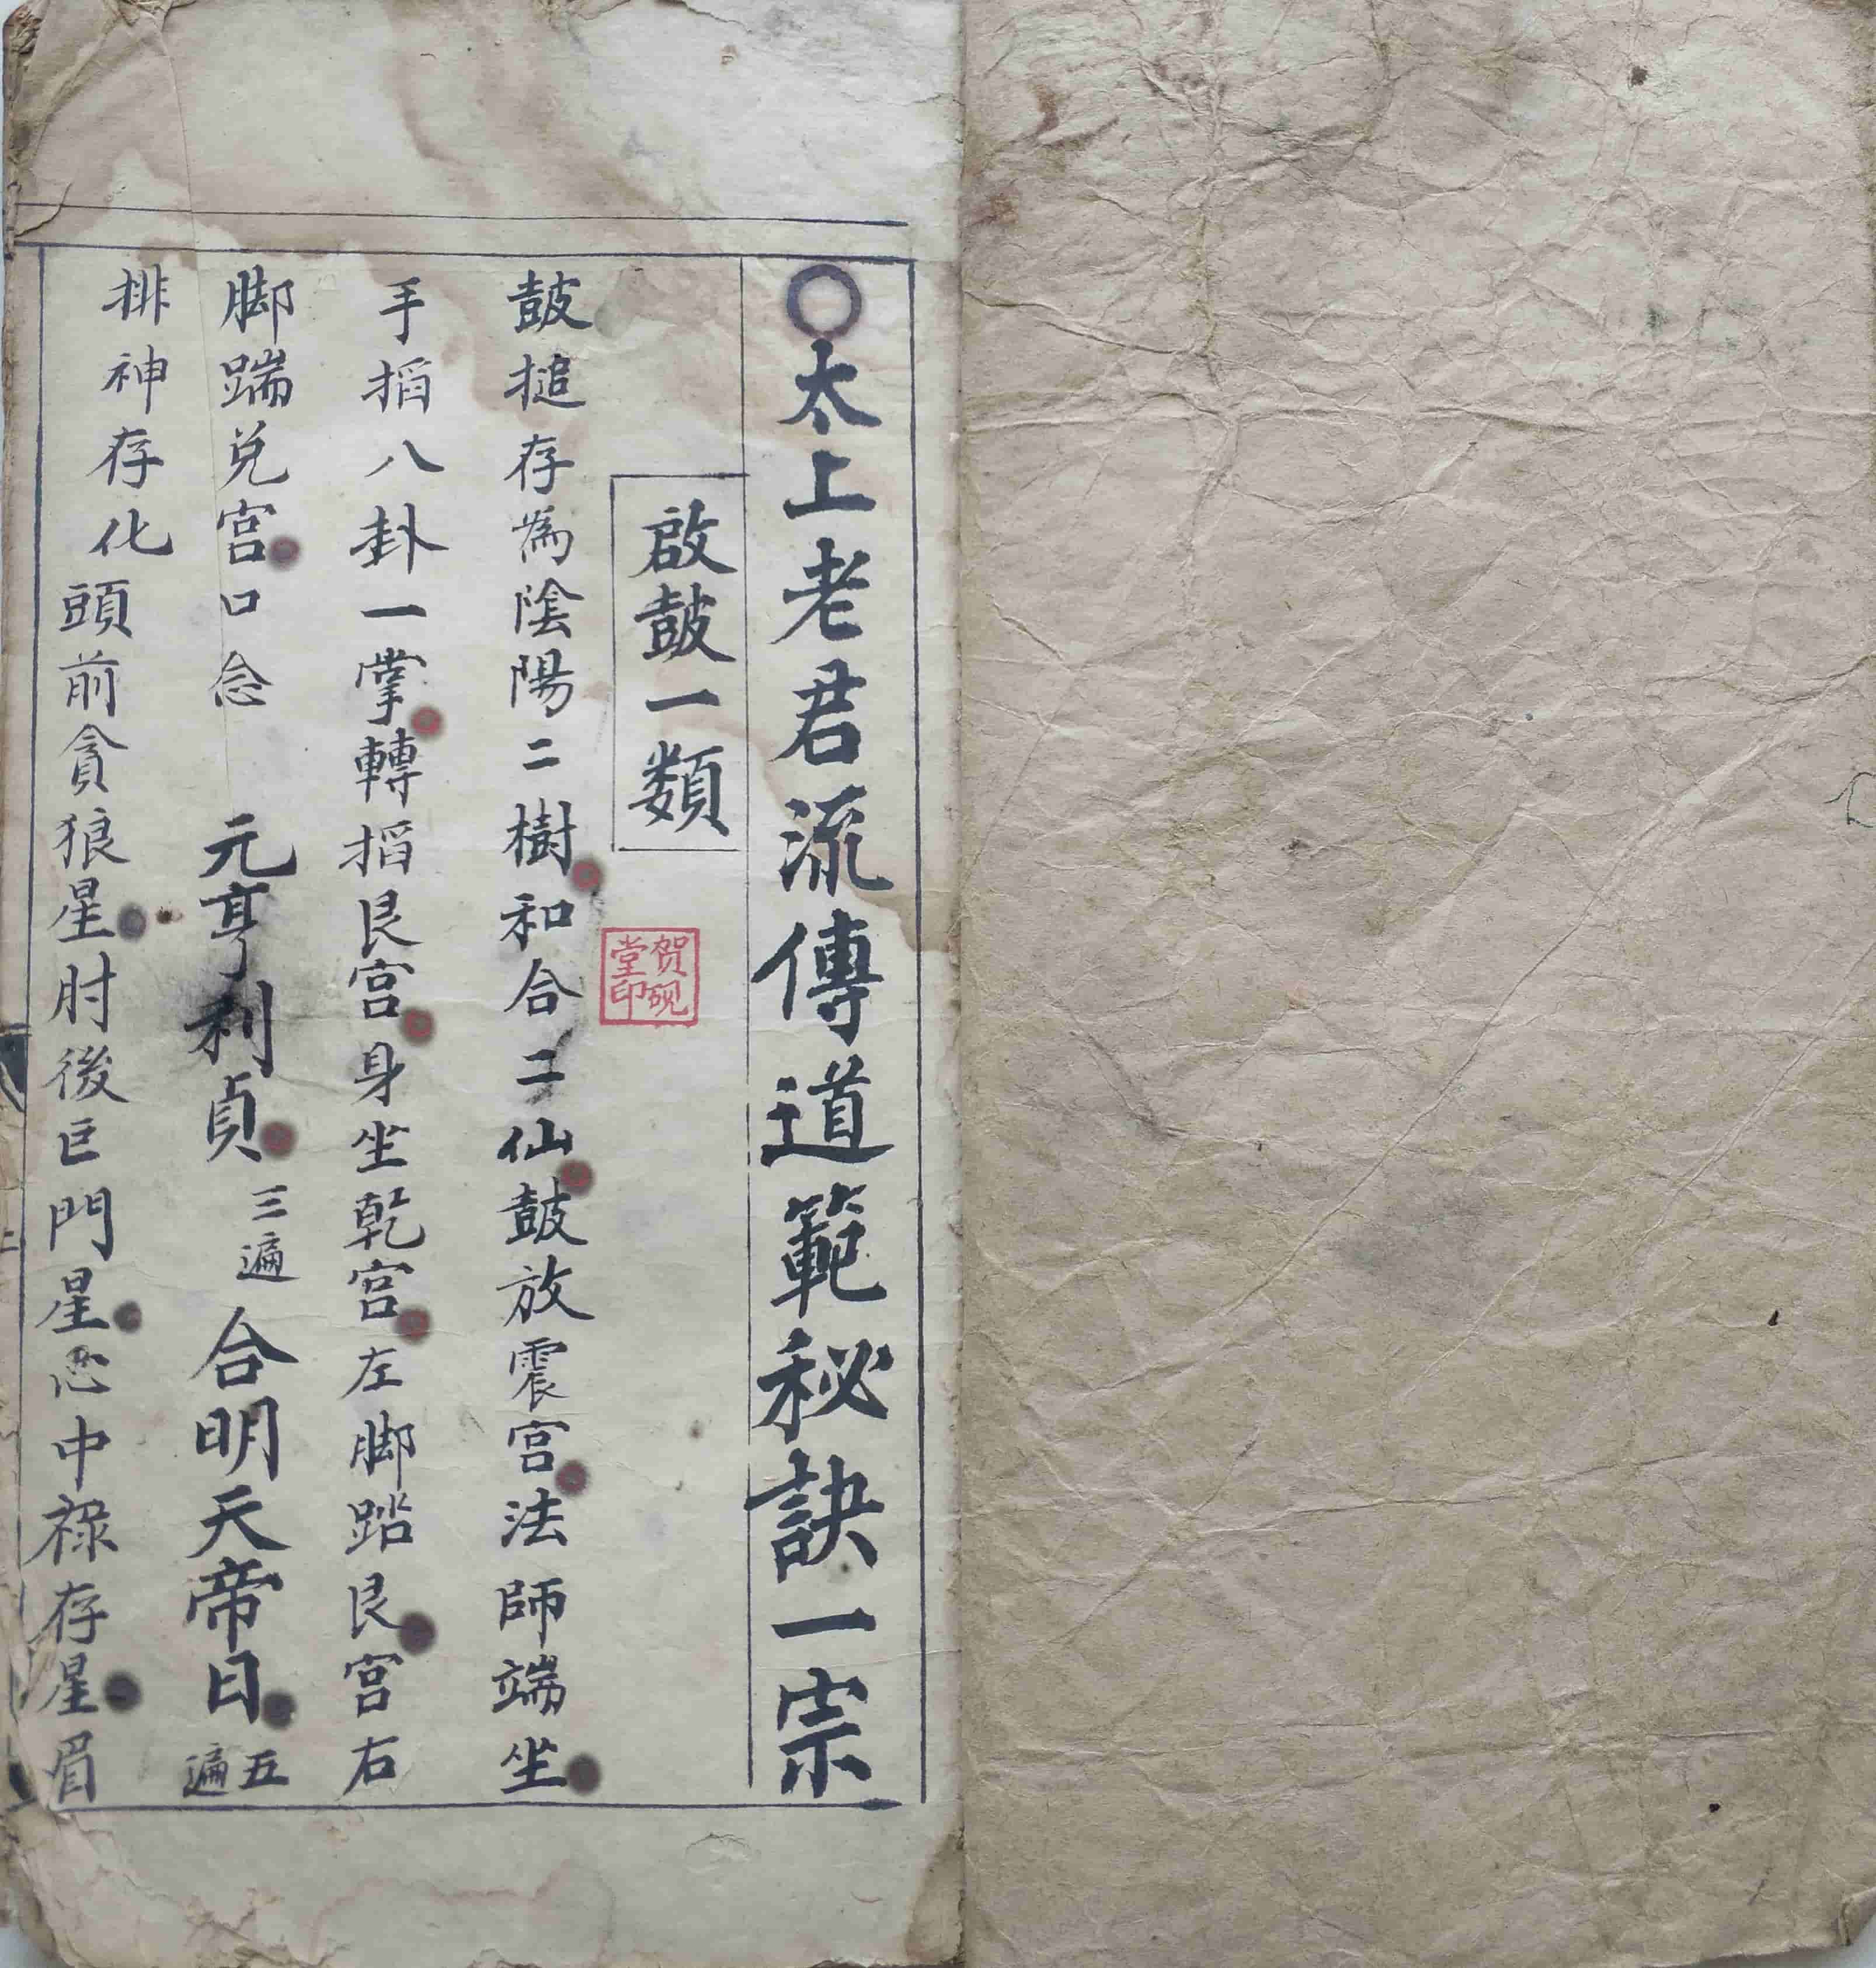 〇太上老君流傳道範秘訣一宗
啟皷一類
皷搥存為陰陽二樹和合二仙皷放震宮法師端坐
手掐八卦一掌轉掐艮宮身坐乾宮左脚踏艮宮右
脚踹兌宮口念 元亨利貞 三遍 合明天帝日 五遍
排神存化頭前貪狼星肘後巨門星心中祿存星眉
贺砚堂印